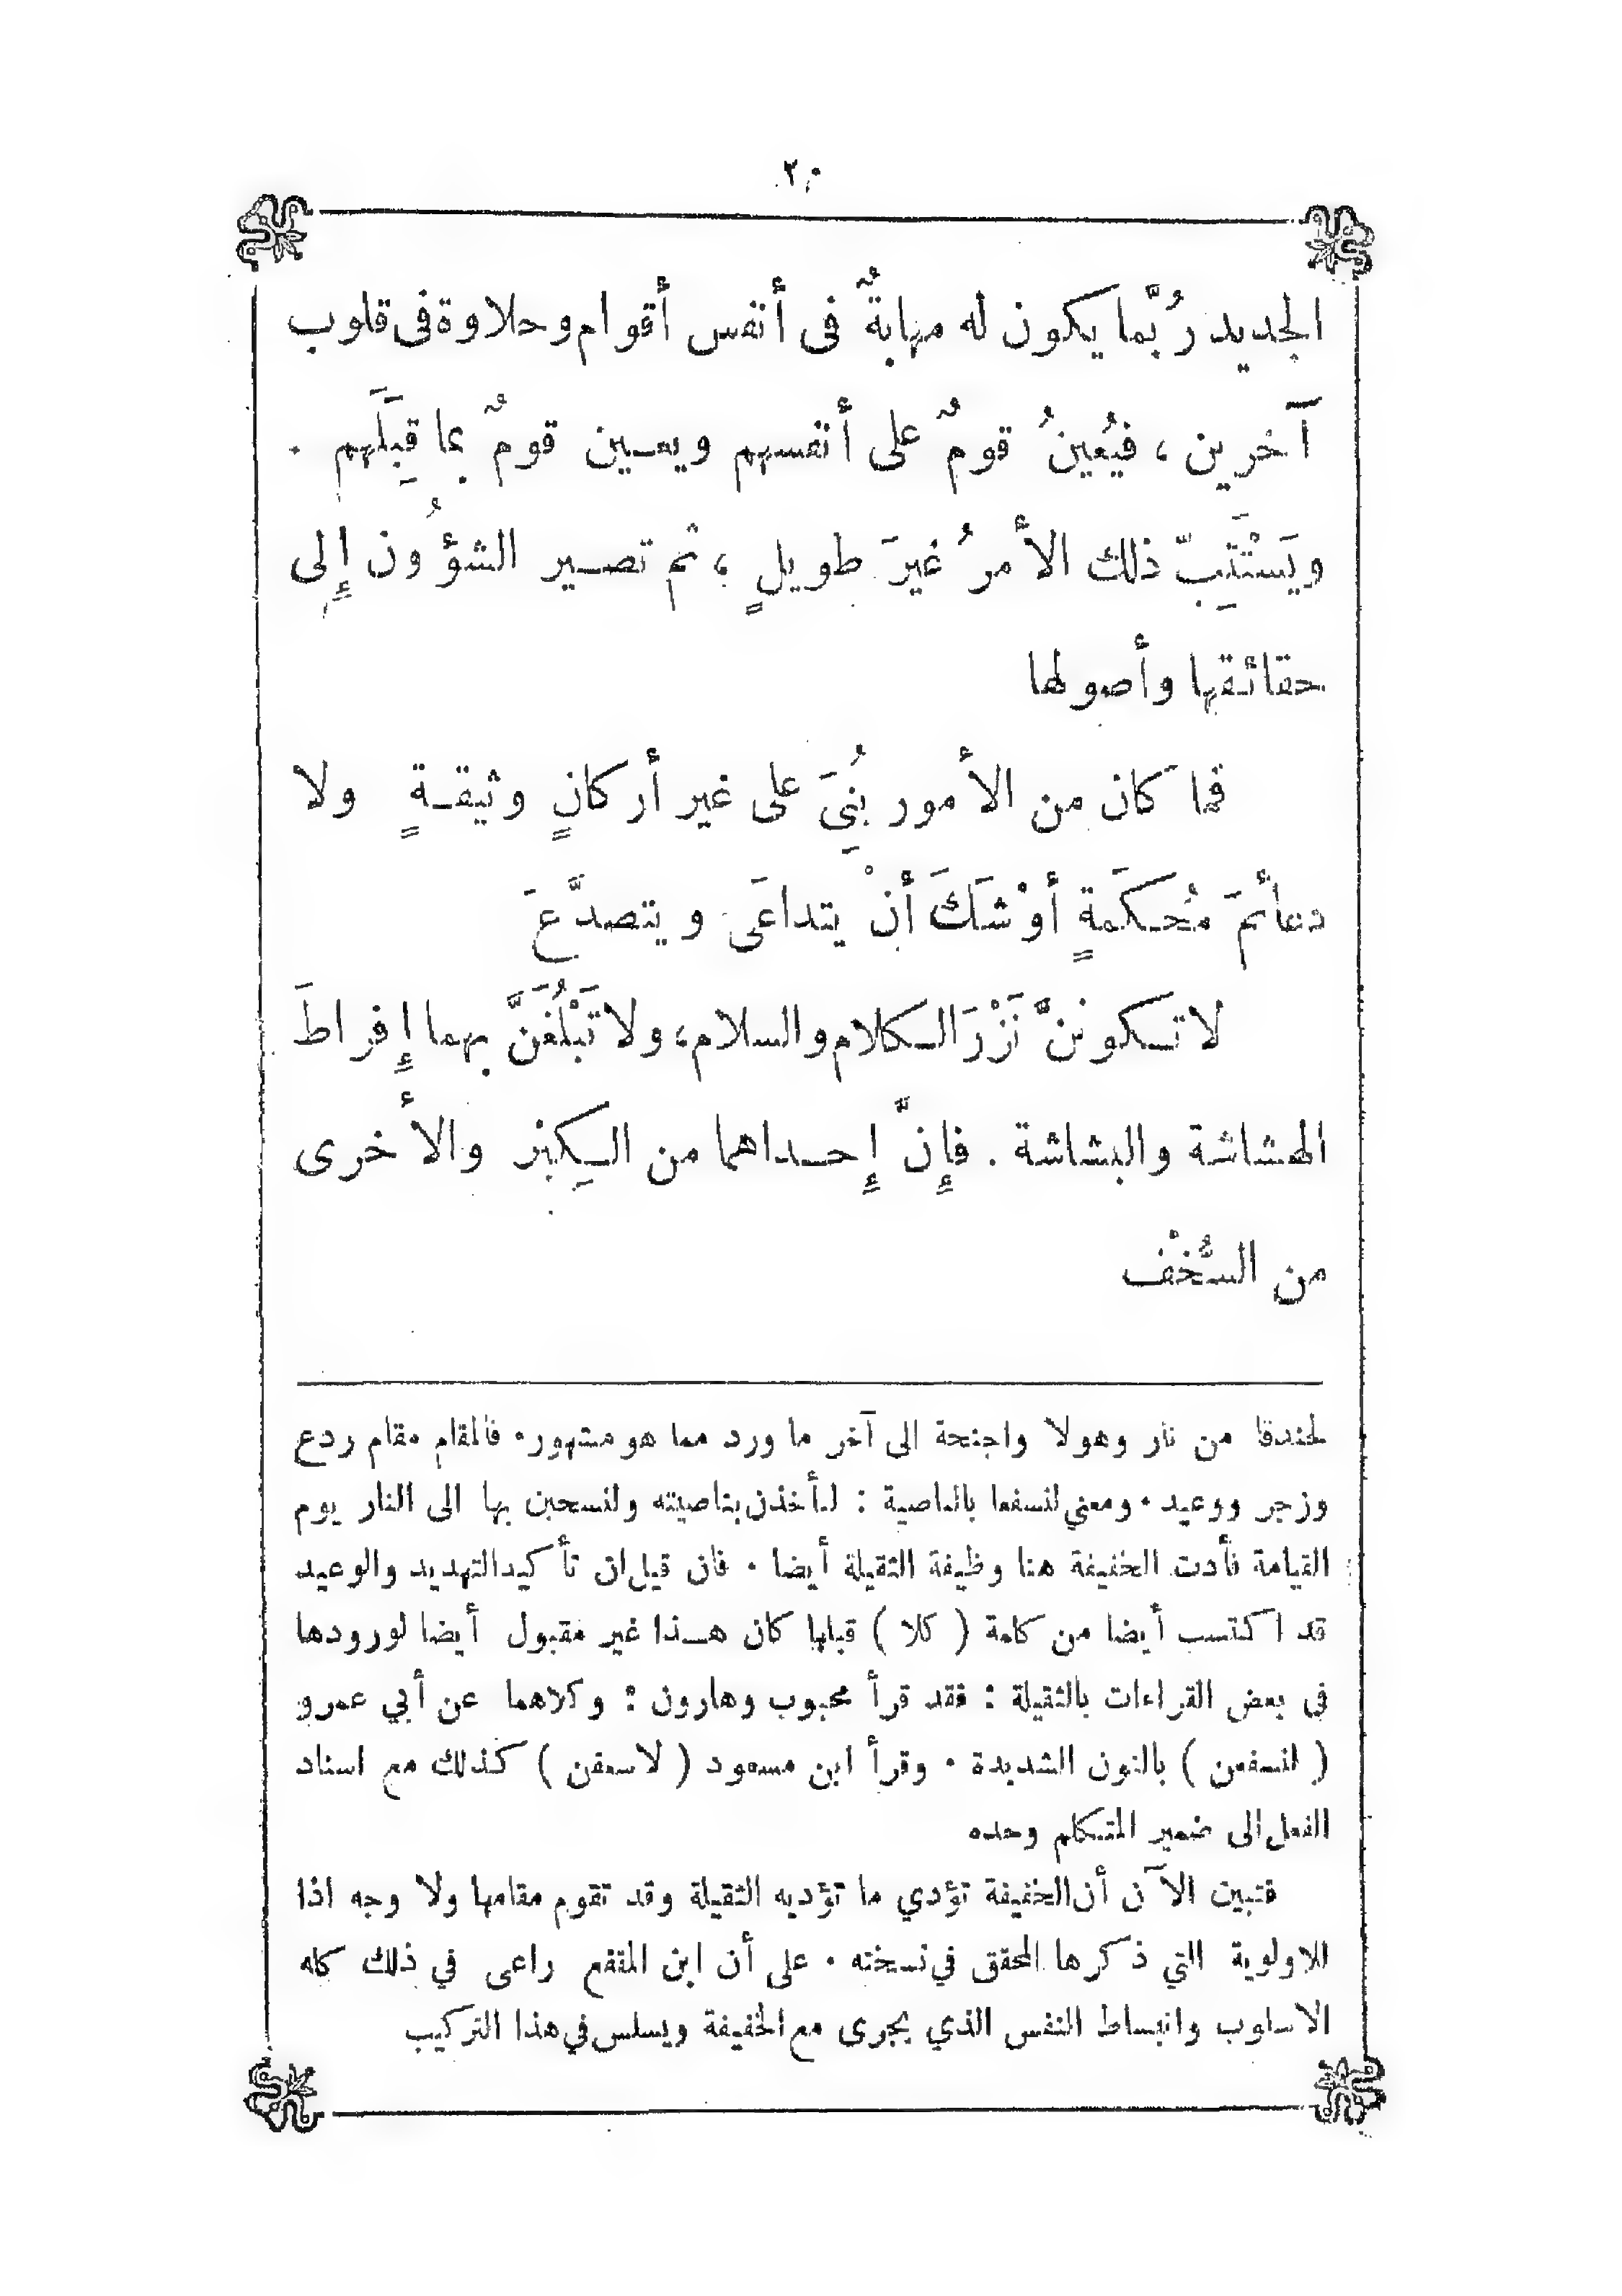 ٢٠
الجديد رُبَّما يكون له مهابةٌ فى أنفس أقوام وحلاوة فى قلوب
آخرين ، فيُعينُ قومٌ على أنفسهم ويعين قومٌ بما قِبَلَهم .
ويَسْتَتِبّ ذلك الأمرُ غيرَ طويلٍ ، ثم تصير الشؤُون إِلى
حقائقها وأصولها
فما كان من الأمور بُنِيَ على غير أركانٍ وثيقةٍ ولا
دعائمَ مُحكَمةٍ أوْشَكَ أنْ يتداعَى ويتصدَّعَ
لا تكوننَّ نَزْرَ الكلام والسلام، ولا تَبْلُغَنَّ بهما إِفراطَ
الهشاشة والبشاشة . فإِنَّ إِحداهما من الكِبْر والأخرى
من السُّخْف
لخندقا من نار وهولا واجنحة الى آخر ما ورد مما هو مشهور. فالمقام مقام ردع
وزجر ووعيد . ومعني لنسفعا بالناصية : لنأخذن بناصيته ولنسحبن بها الى النار يوم
القيامة فأدت الخفيفة هنا وظيفة الثقيلة أيضا . فان قيل ان تأكيد التهديد والوعيد
قد اكتسب أيضا من كلمة ( كلا ) قبلها كان هذا غير مقبول أيضا لورودها
فى بعض القراءات بالثقيلة : فقد قرأ محبوب وهارون : وكلاهما عن أبي عمرو
( لنسفعن ) بالنون الشديدة . وقرأ ابن مسعود ( لاسعفن ) كذلك مع اسناد
الفعل الى ضمير المتكلم وحده
فتبين الآن أن الخفيفة تؤدي ما تؤديه الثقيلة وقد تقوم مقامها ولا وجه اذا
للاولوية التي ذكرها المحقق في نسخته . على أن ابن المقفع راعى في ذلك كله
الاسلوب وانبساط النفس الذي يجرى مع الخفيفة ويسلس في هذا التركيب